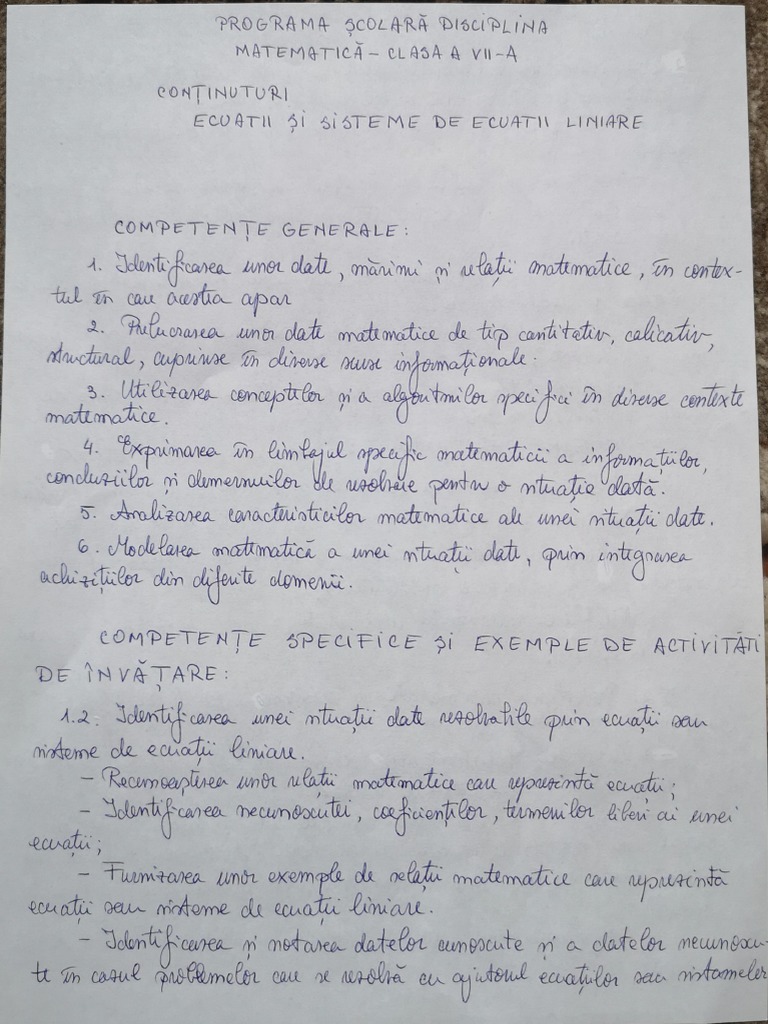 PROGRAMA ȘCOLARĂ DISCIPLINA
MATEMATICĂ - CLASA A VII-A
CONȚINUTURI
ECUATII ȘI SISTEME DE ECUATII LINIARE
COMPETENȚE GENERALE:
1. Identificarea unor date, mărimi și relații matematice, în contex-
tul în care acestia apar
2. Prelucrarea unor date matematice de tip cantitativ, calicativ,
structural, cuprinse în diverse surse informaționale.
3. Utilizarea conceptelor și a algoritmilor specifici în diverse contexte
matematice.
4. Exprimarea în limbajul specific matematicii a informațiilor,
concluziilor și demersurilor de rezolvare pentru o situație dată.
5. Analizarea caracteristicilor matematice ale unei situații date.
6. Modelarea matematică a unei situații date, prin integrarea
achizițiilor din diferite domenii.
COMPETENȚE SPECIFICE ȘI EXEMPLE DE ACTIVITĂTI
DE ÎNVĂȚARE:
1.2. Identificarea unei situații date rezolvabile prin ecuații sau
sisteme de ecuații liniare.
- Recunoașterea unor relații matematice care reprezintă ecuații;
- Identificarea necunoscutei, coeficienților, termenilor liberi ai unei
ecuații;
- Furnizarea unor exemple de relații matematice care reprezintă
ecuații sau sisteme de ecuații liniare.
- Identificarea și notarea datelor cunoscute și a datelor necunoscu-
te în cazul problemelor care se rezolvă cu ajutorul ecuațiilor sau sistemelor